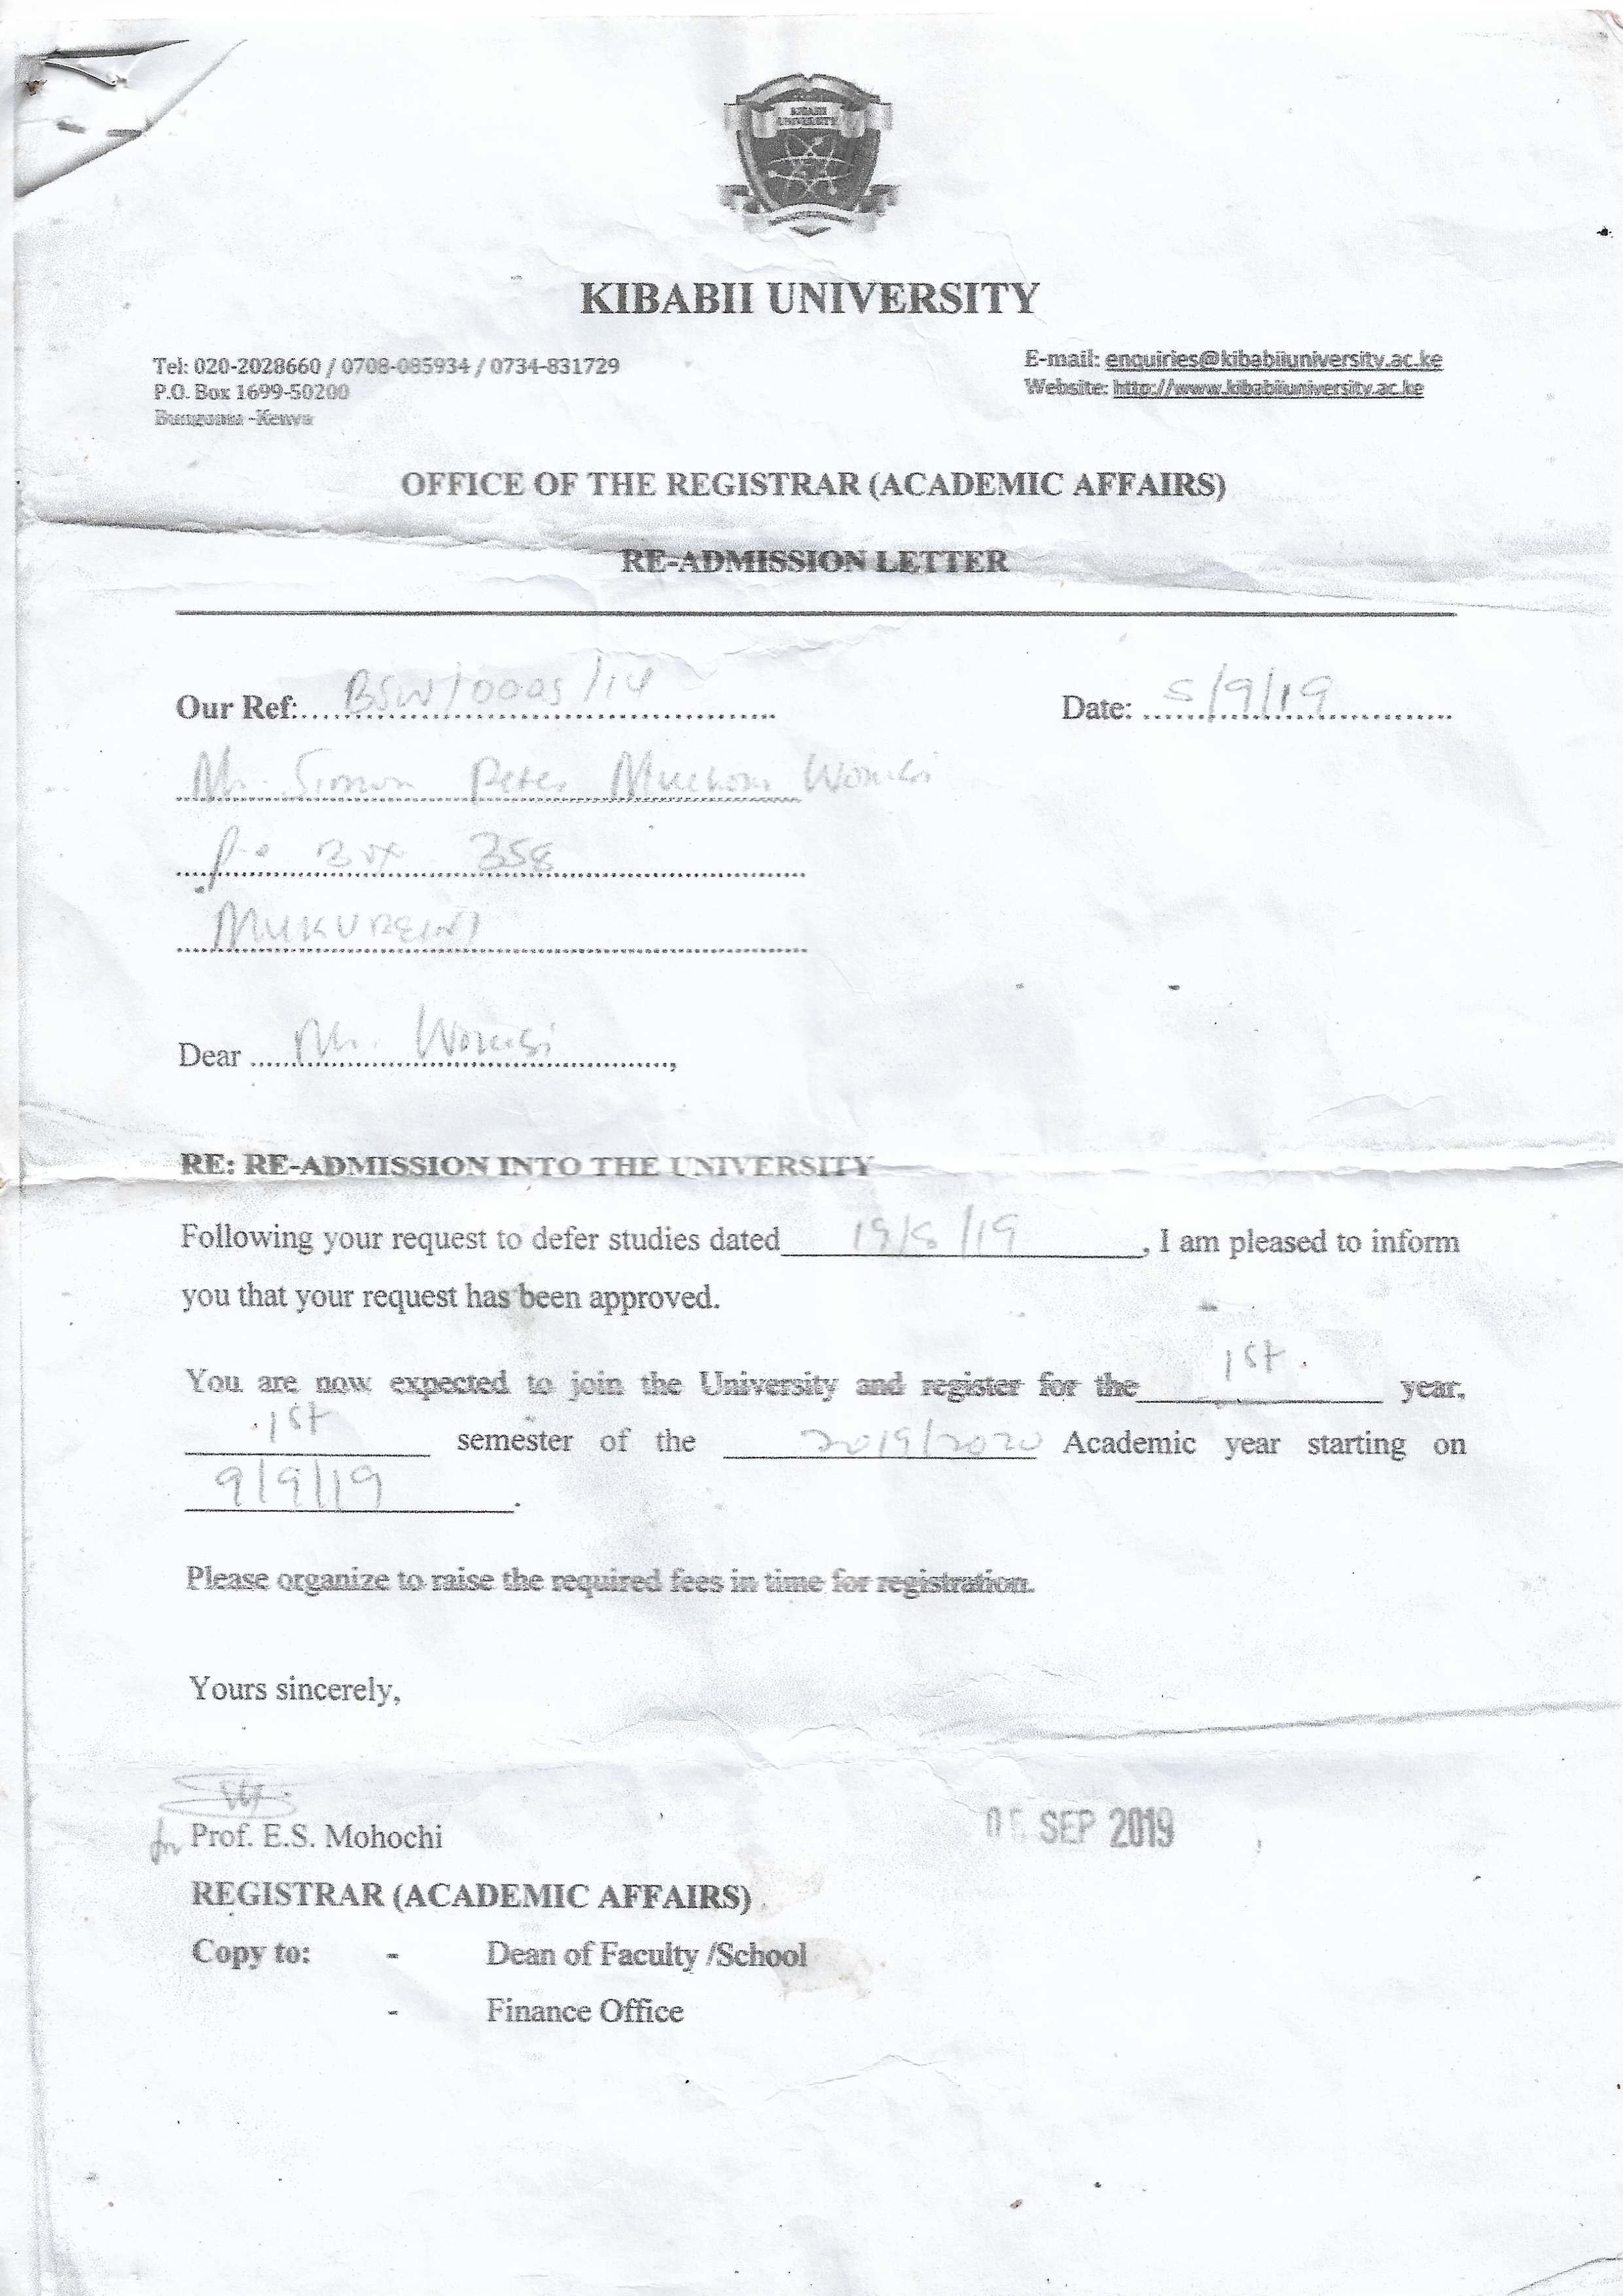 KIBABII UNIVERSITY
KIBABII UNIVERSITY
Tel: 020-2028660 / 0708-085934 / 0734-831729
P.O. Box 1699-50200
Bungoma -Kenya
E-mail: enquiries@kibabiiuniversity.ac.ke
Website: http://www.kibabiiuniversity.ac.ke
OFFICE OF THE REGISTRAR (ACADEMIC AFFAIRS)
RE-ADMISSION LETTER
Our Ref: BSW/0005/14 Date: 5/9/19
Mr. Simon Peter
P.o Box 358
MUKUREINI
Dear Mr.
RE: RE-ADMISSION INTO THE UNIVERSITY
Following your request to defer studies dated 19/8/19, I am pleased to inform
you that your request has been approved.
You are now expected to join the University and register for the 1st year,
1st semester of the 2019/2020 Academic year starting on
9/9/19.
Please organize to raise the required fees in time for registration.
Yours sincerely,
for Prof. E.S. Mohochi
05 SEP 2019
REGISTRAR (ACADEMIC AFFAIRS)
Copy to: - Dean of Faculty /School
- Finance Office